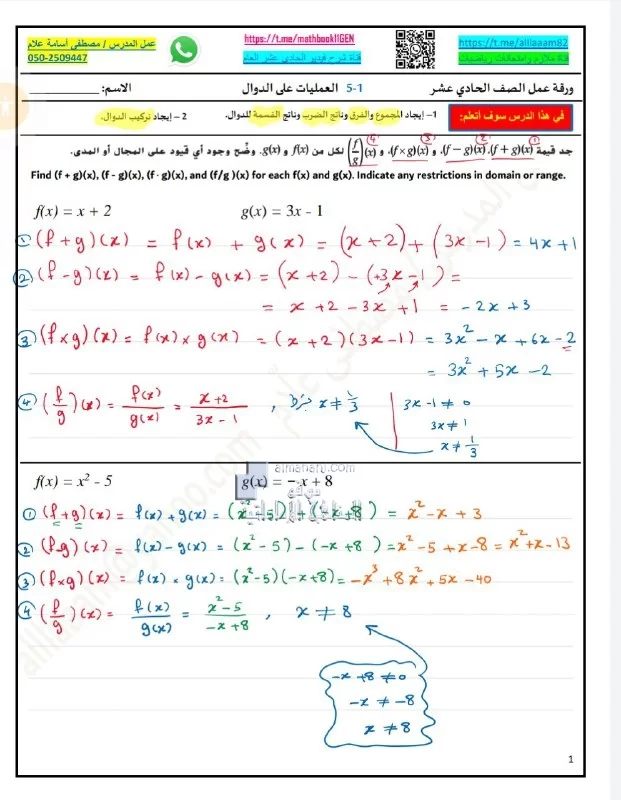 عمل المدرس / مصطفى أسامة علام
050-2509447
https://t.me/mathbook11GEN
قناة شرح فيديو الحادي عشر العام
https://t.me/alllaaam82
قناة ملازم وامتحانات رياضيات
ورقة عمل الصف الحادي عشر 5-1 العمليات على الدوال الاسم:
في هذا الدرس سوف أتعلم: 1- إيجاد المجموع والفرق وناتج الضرب وناتج القسمة للدوال. 2- إيجاد تركيب الدوال.
① ② ③ ④
جد قيمة (f + g)(x), (f − g)(x), و (f × g)(x), و (f/g)(x) لكل من f(x) و g(x). وضّح وجود أي قيود على المجال أو المدى.
Find (f + g)(x), (f - g)(x), (f · g)(x), and (f/g )(x) for each f(x) and g(x). Indicate any restrictions in domain or range.
f(x) = x + 2 g(x) = 3x - 1
① (f + g)(x) = f(x) + g(x) = (x + 2) + (3x − 1) = 4x + 1
② (f − g)(x) = f(x) − g(x) = (x + 2) − (+3x − 1) =
= x + 2 − 3x + 1 = −2x + 3
③ (f × g)(x) = f(x) × g(x) = (x + 2)(3x − 1) = 3x² − x + 6x − 2
= 3x² + 5x − 2
④ (f/g)(x) = f(x)/g(x) = x+2/3x − 1 , x ≠ 1/3
3x − 1 ≠ 0
3x ≠ 1
x ≠ 1/3
almanahj.com
موقع
المناهج الإماراتية
f(x) = x² - 5 g(x) = − x + 8
① (f + g)(x) = f(x) + g(x) = (x² − 5) + (−x + 8) = x² − x + 3
② (f-g)(x) = f(x) − g(x) = (x² − 5) − (−x + 8) = x² − 5 + x − 8 = x² + x − 13
③ (f×g)(x) = f(x) × g(x) = (x² − 5)(−x + 8) = −x³ + 8x² + 5x − 40
④ (f/g)(x) = f(x)/g(x) = x² − 5/−x + 8 , x ≠ 8
−x + 8 ≠ 0
−x ≠ −8
x ≠ 8
1